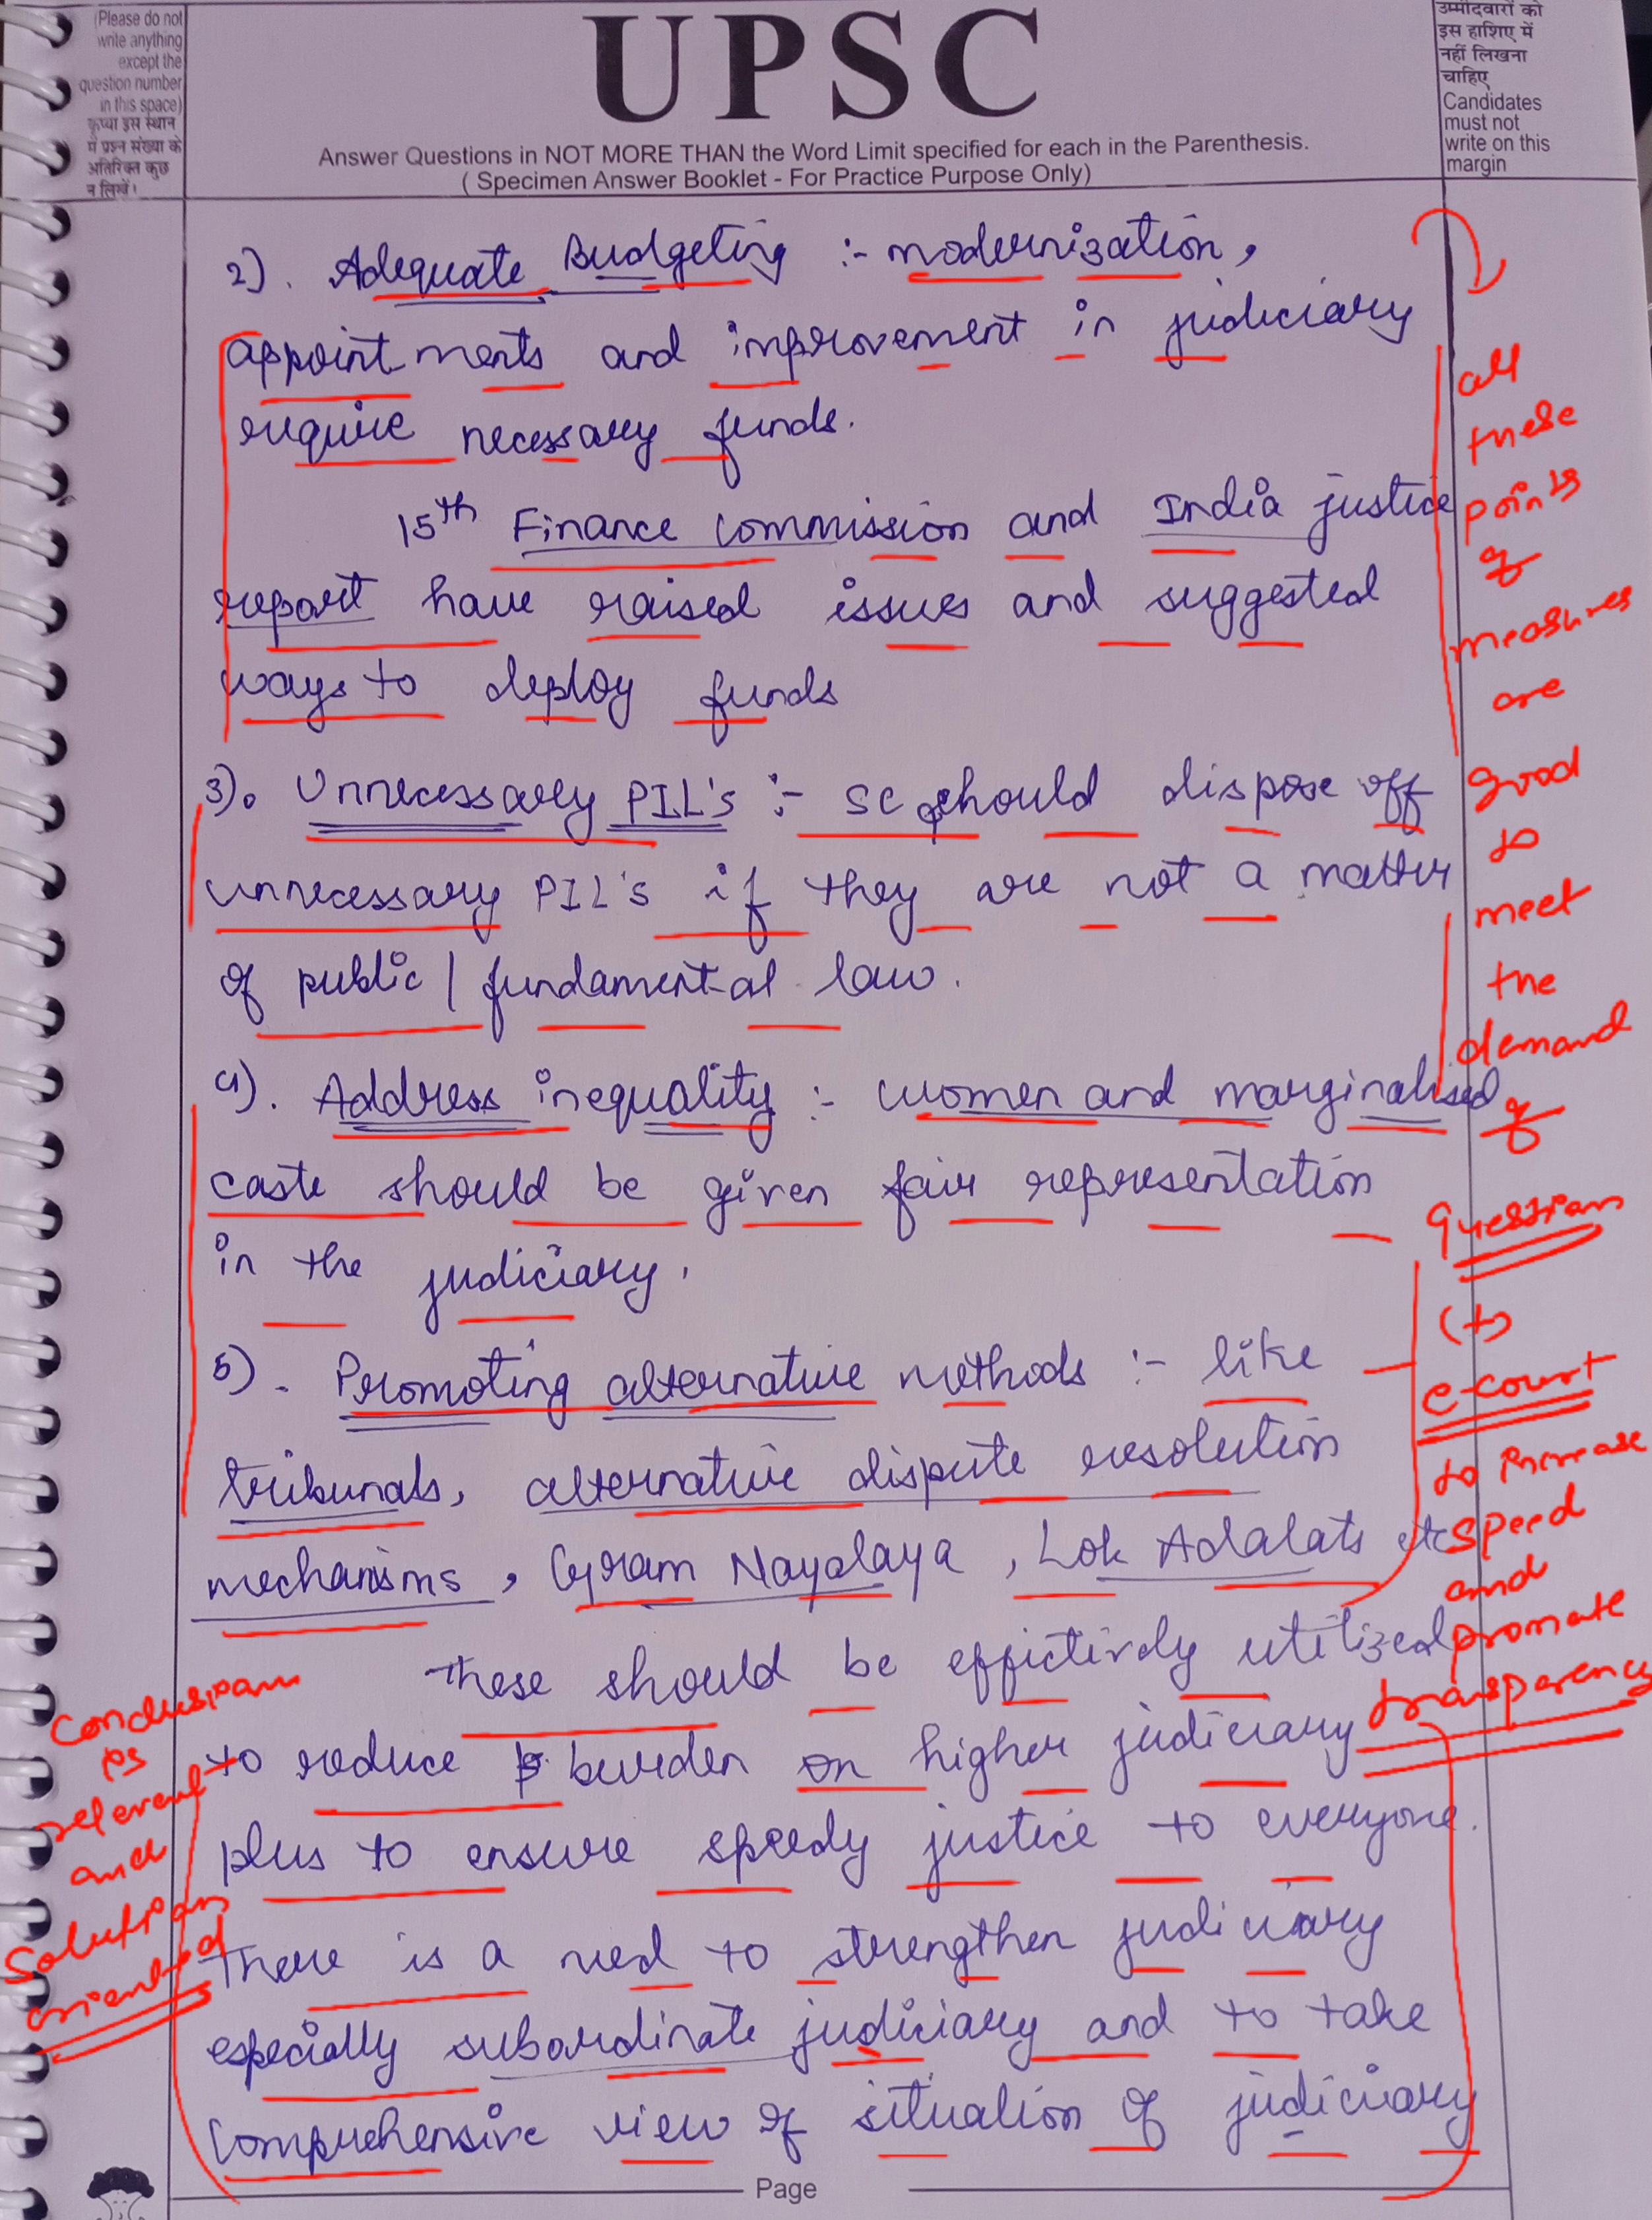 (Please do not
write anything
except the
question number
in this space)
कृप्या इस स्थान
में प्रश्न संख्या के
अतिरिक्त कुछ
न लिखें।
UPSC
Answer Questions in NOT MORE THAN the Word Limit specified for each in the Parenthesis.
( Specimen Answer Booklet - For Practice Purpose Only)
उम्मीदवारों को
इस हाशिए में
नहीं लिखना
चाहिए
Candidates
must not
write on this
margin
2). Adequate Budgeting :- modernization,
appointments and improvement in judiciary
require necessary funds.
15th Finance commission and India justice
report have raised issues and suggested
ways to deploy funds
3). Unnecessary PIL's :- SC should dispose off
unnecessary PIL's if they are not a matter
of public / fundamental law.
4). Address inequality :- women and marginalised
caste should be given fair representation
in the judiciary.
5). Promoting alternative methods :- like
tribunals, alternative dispute resolution
mechanisms, Gram Nayalaya, Lok Adalats etc
These should be effictively utilized
to reduce burden on higher judiciary
plus to ensure speedy justice to everyone.
There is a need to strengthen judiciary
especially subordinate judiciary and to take
comprehensive view of situation of judiciary
all
these
points
of
measures
are
good
to
meet
the
demand
of
question
(+)
e-court
to increase
speed
and
promote
transparency
Conclusion
is
relevant
and
solution
oriented
Page